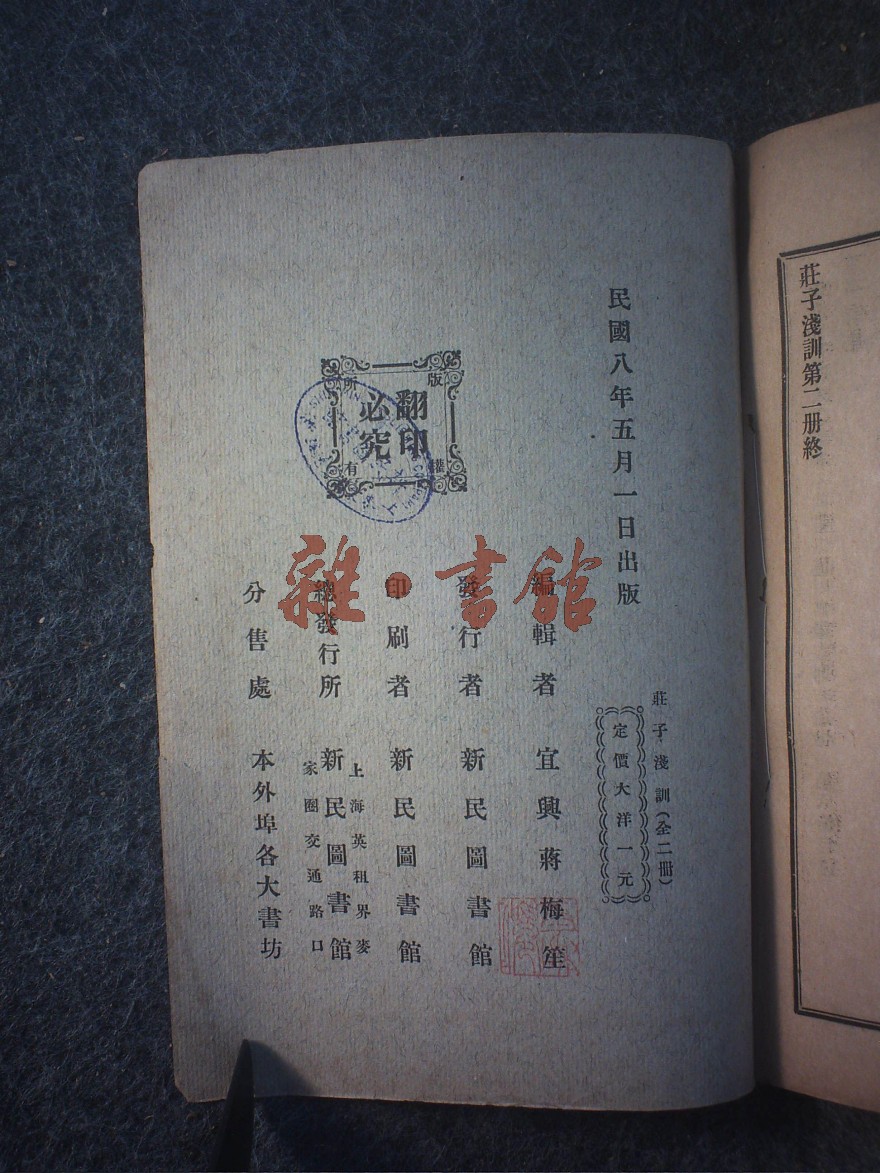 莊子淺訓第二册終
民國八年五月一日出版
莊子淺訓(全二冊)
定價大洋一元
編輯者 宜興蔣梅笙
發行者 新民圖書館
印刷者 新民圖書館
總發行所 上海英租界麥家圈交通路口 新民圖書館
分售處 本外埠各大書坊
版權所有
翻印必究
雜·書館